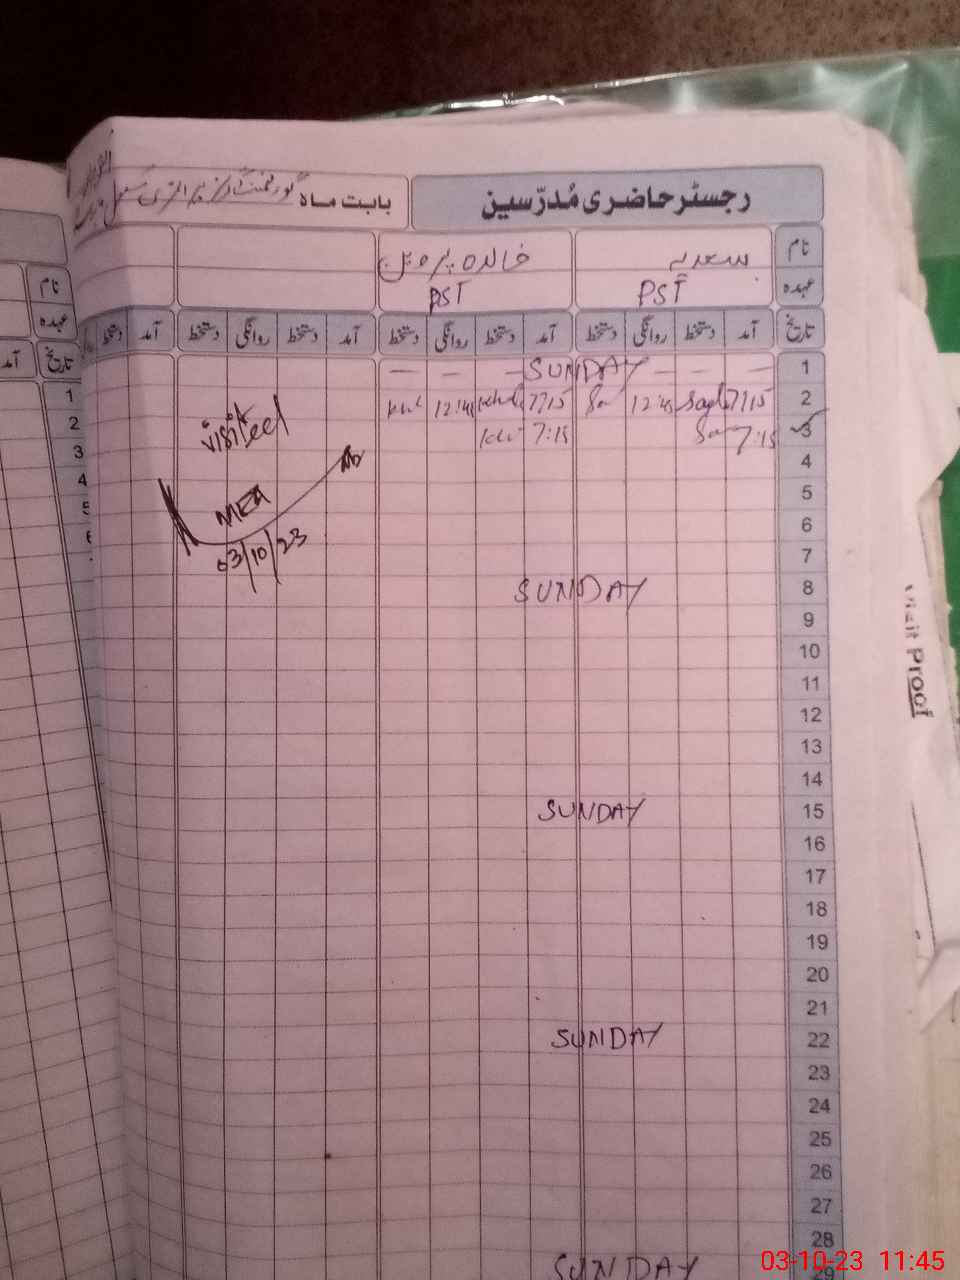 رجسٹر حاضری مُدرّسین
بابت ماہ گورنمنٹ گرلز پرائمری سکول
نام سعدیہ خالدہ پروین
عہدہ PST PST
تاریخ آمد دستخط روانگی دستخط آمد دستخط روانگی دستخط آمد دستخط روانگی دستخط آمد دستخط
1 — — — SUNDAY — — —
2 7:15 12:45 7:15 12:45
3 7:15 7:15
4
5
6
7
8 SUNDAY
9
10
11
12
13
14
15 SUNDAY
16
17
18
19
20
21
22 SUNDAY
23
24
25
26
27
28
29 SUNDAY
visited
MEA
03/10/23
نام
عہدہ
تاریخ
آمد
1
2
3
4
5
6
Visit Proof
03-10-23 11:45